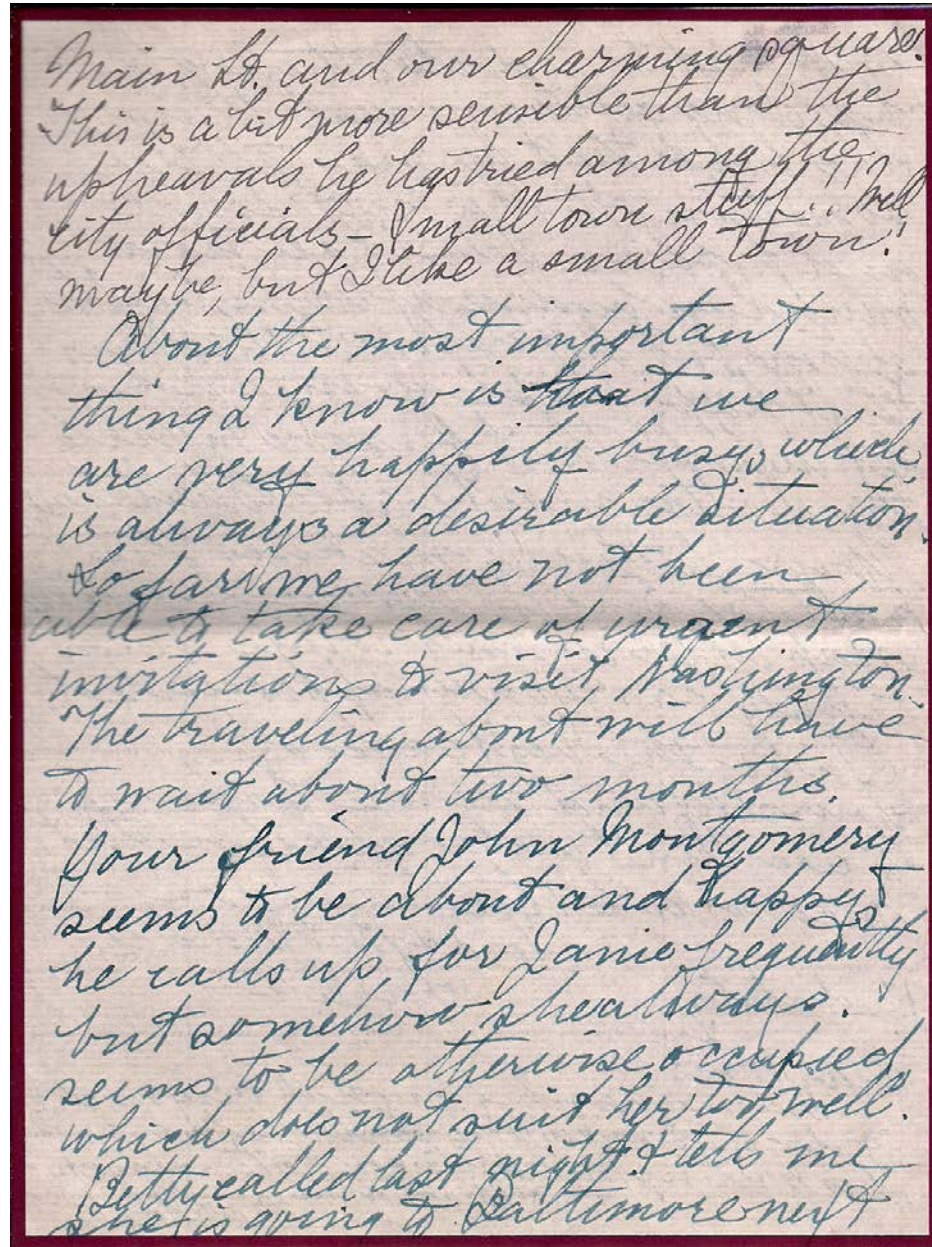 Main St. and our charming square.
This is a bit more sensible than the
upheavals he has tried among the
city officials – Small town stuff!! Well,
maybe, but I like a small town!
About the most important
thing I know is that we
are very happily busy, which
is always a desirable situation.
So far we have not been
able to take care of urgent
invitations to visit Washington.
The traveling about will have
to wait about two months.
Your friend John Montgomery
seems to be about and happy,
he calls up for Janie frequently
but somehow she always
seems to be otherwise occupied,
which does not suit her too well.
Betty called last night & tells me
she is going to Baltimore next